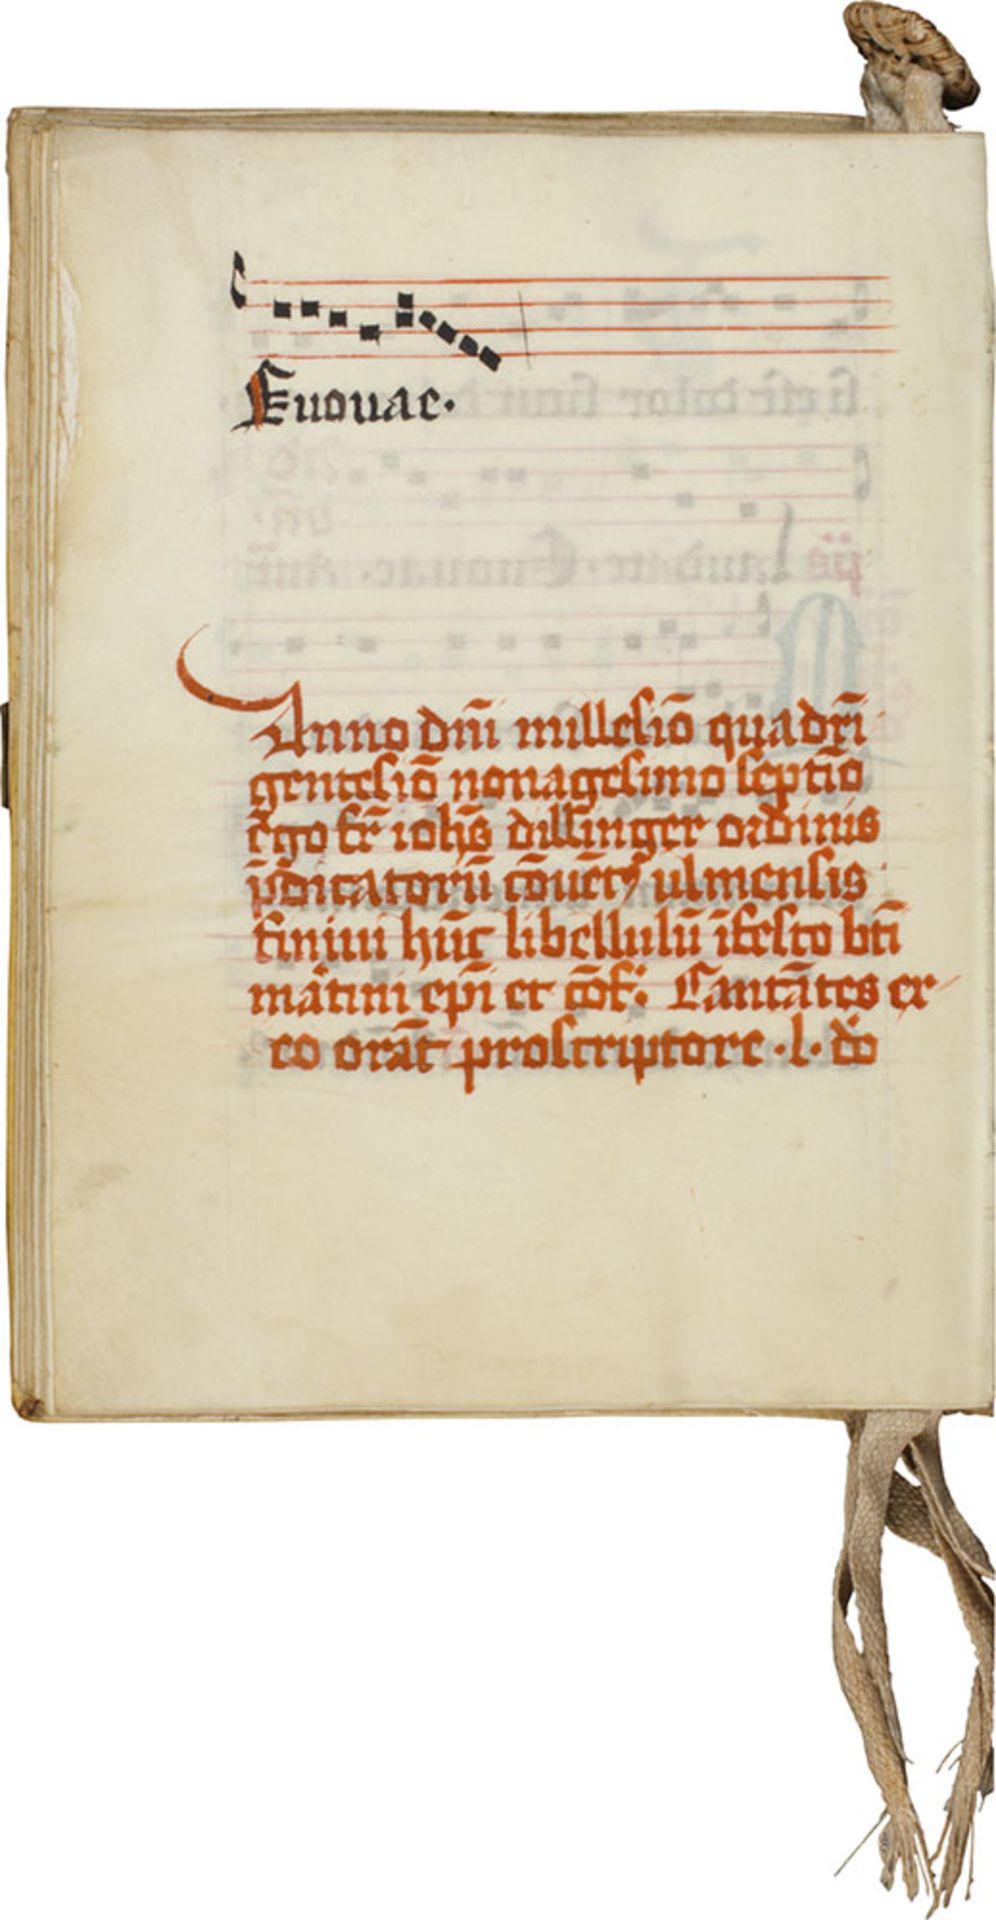 Euouae.
Anno dn̄i millesiō quadri̅
gentesiō nonagesimo septiō
ego fr̄ ioh̄s dillinger ordinis
p̄dicatorū cōuēt⁹ ulmensis
finiui hūc libellulū īfesto bt̄i
martini ep̄i et cōf: Cantātes ex
eo orāt proscriptore .l. do